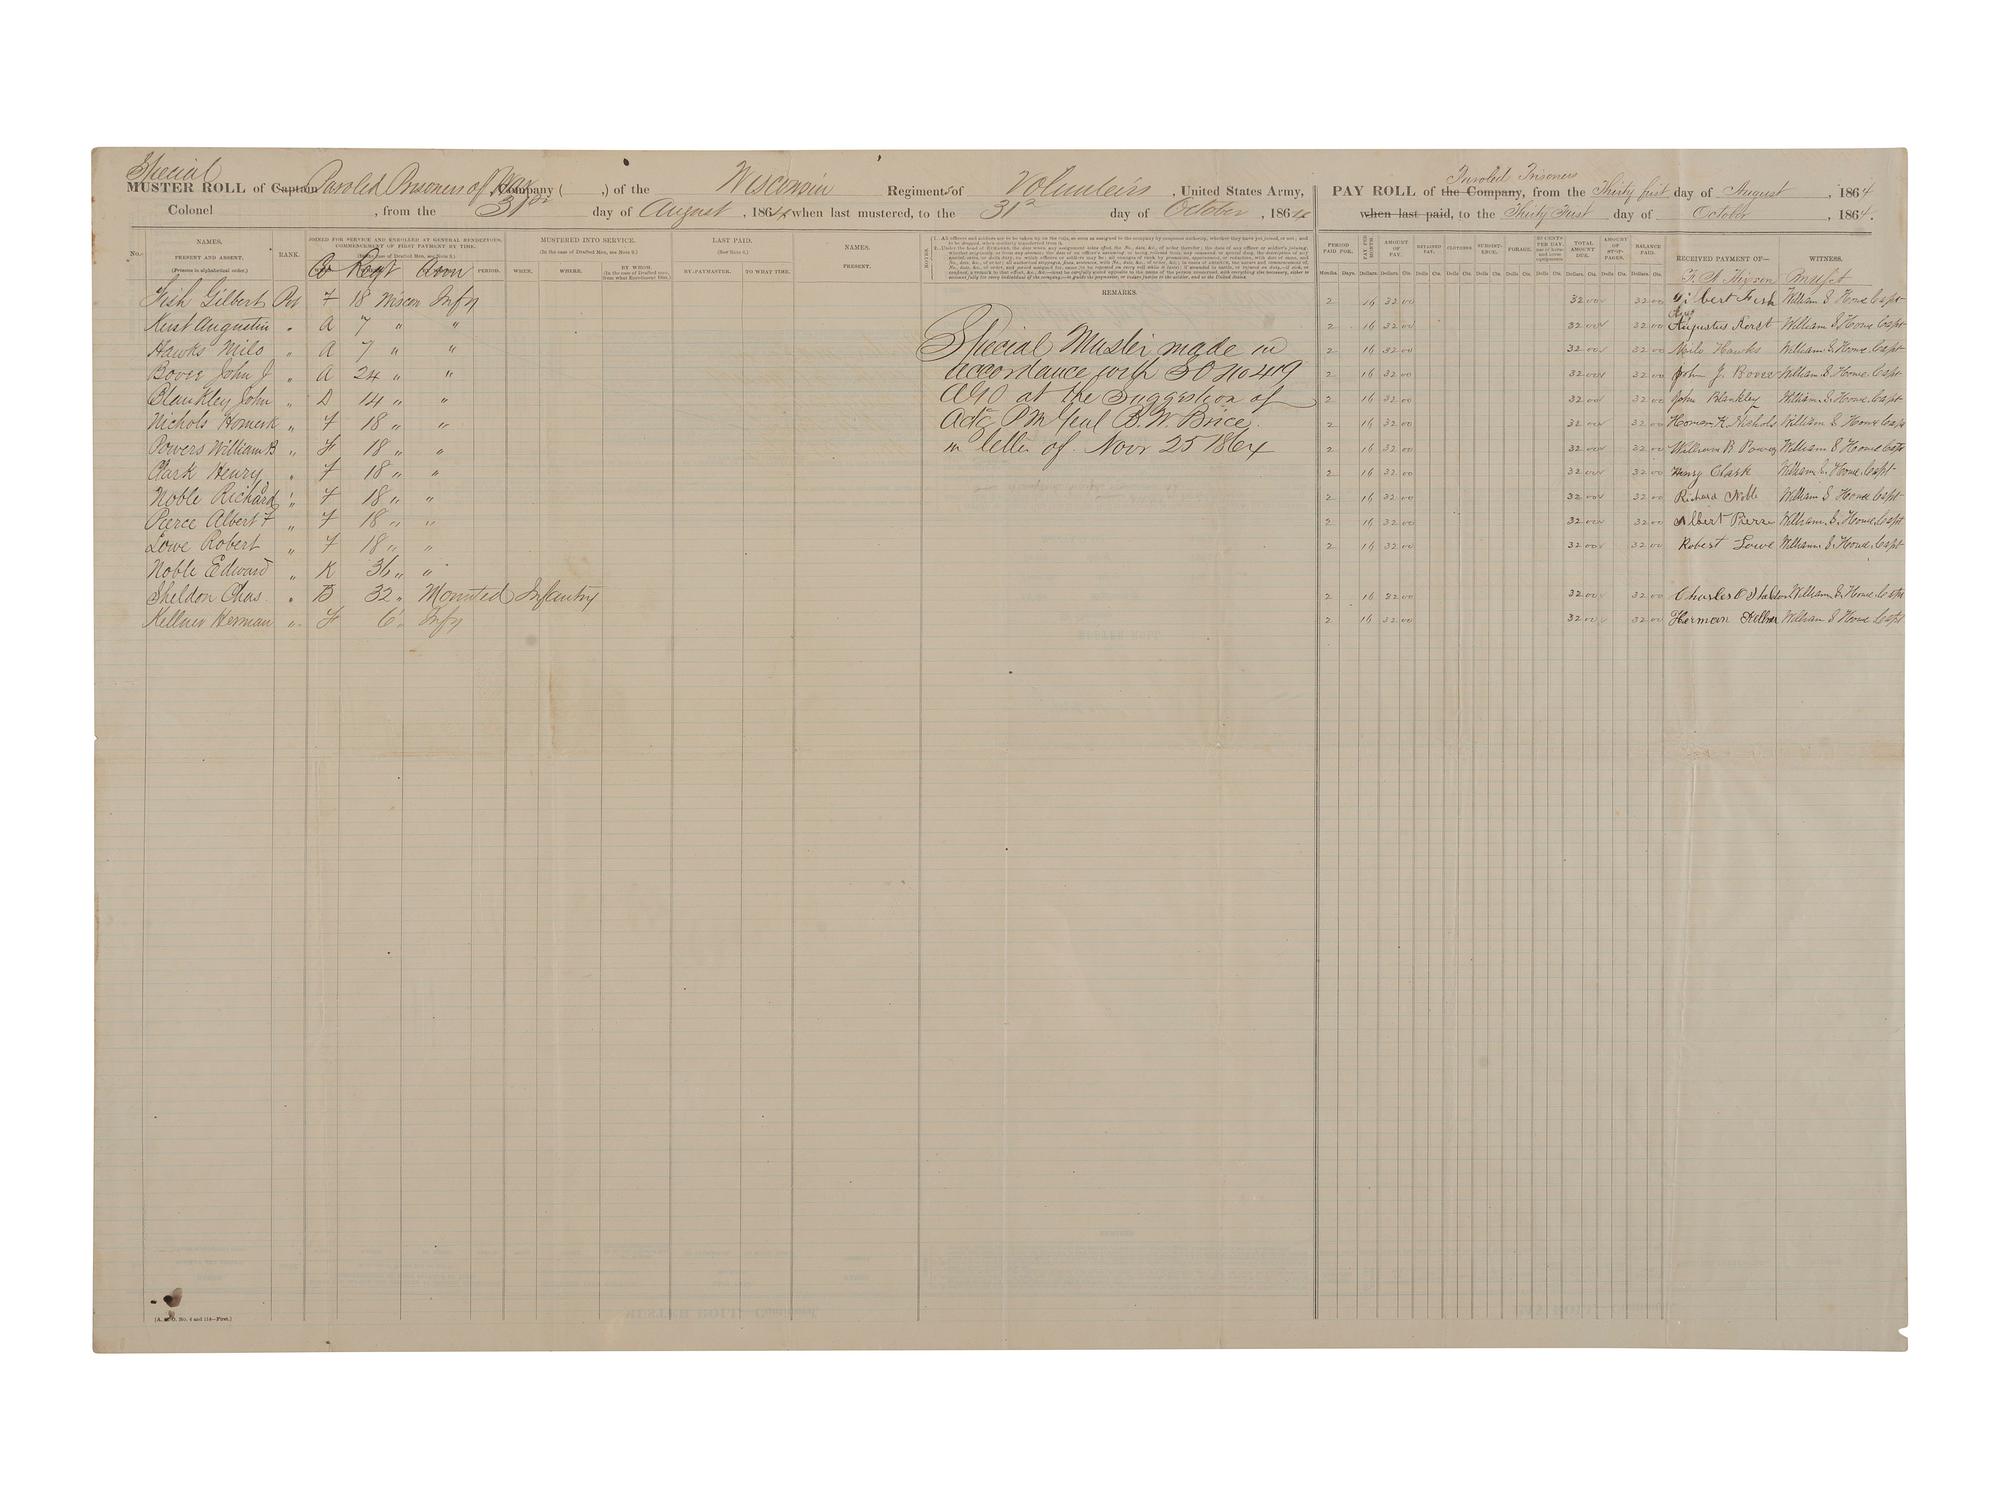 Special
MUSTER ROLL of Captain Paroled Prisoners of War, Company ( ,) of the Wisconsin Regiment of Volunteers, United States Army,
Colonel , from the 31st day of August, 1864 when last mustered, to the 31st day of October, 1864
Paroled Prisoners
PAY ROLL of the Company, from the Thirty first day of August, 1864
when last paid, to the Thirty First day of October, 1864.
No. NAMES. PRESENT AND ABSENT. (Privates in alphabetical order.) RANK.
JOINED FOR SERVICE AND ENROLLED AT GENERAL RENDEZVOUS, COMMENCEMENT OF FIRST PAYMENT BY TIME.
(In the case of Drafted Men, see Note 9.)
Co Regt Arm PERIOD.
MUSTERED INTO SERVICE.
(In the case of Drafted Men, see Note 9.)
WHEN. WHERE. BY WHOM.
(In the case of Drafted men, from what Enrollment Dist.)
LAST PAID.
(See Note 6.)
BY PAYMASTER. TO WHAT TIME.
NAMES. PRESENT.
NOTES.
REMARKS.
PERIOD PAID FOR. PAY PER MONTH. AMOUNT OF PAY. RETAINED PAY. CLOTHING. SUBSISTENCE. FORAGE. TOTAL AMOUNT DUE. AMOUNT OF STOPPAGES. BALANCE PAID. RECEIVED PAYMENT OF— WITNESS.
Months. Days. Dollars. Dollars. Cts.
Fish Gilbert Pvt F 18 Wiscon Infy 2 16 32 00 32 00 32 00 Gilbert Fish William S Howe Capt
Kerst Augustin " A 7 " " 2 16 32 00 32 00 32 00 Augustus Kerst William S Howe Capt
Hawks Milo " A 7 " " 2 16 32 00 32 00 32 00 Milo Hawks William S Howe Capt
Bovee John J " A 24 " " 2 16 32 00 32 00 32 00 John J. Bovee William S. Howe. Capt
Blankley John " D 14 " " 2 16 32 00 32 00 32 00 John Blankley William S. Howe. Capt
Nichols Homer K " F 18 " " 2 16 32 00 32 00 32 00 Homer K. Nichols William S Howe Capt
Powers William B " F 18 " " 2 16 32 00 32 00 32 00 William B Powers William S Howe Capt
Clark Henry " F 18 " " 2 16 32 00 32 00 32 00 Henry Clark William S. Howe. Capt
Noble Richard " F 18 " " 2 16 32 00 32 00 32 00 Richard Noble William S Howe Capt
Pierce Albert F " F 18 " " 2 16 32 00 32 00 32 00 Albert Pierce William S. Howe. Capt
Lowe Robert " F 18 " " 2 16 32 00 32 00 32 00 Robert Lowe William S. Howe. Capt
Noble Edward " K 36 " "
Sheldon Chas. " B 32 " Mounted Infantry 2 16 32 00 32 00 32 00 Charles Sheldon William S. Howe Capt
Kellner Herman " F 6 " Infy 2 16 32 00 32 00 32 00 Herman Kellner William S Howe Capt
Special Muster made in
accordance with SO No 419
AGO at the Suggestion of
Actg P M Genl B. W. Brice.
in letter of Novr 25 1864
[A. G. O. No. 4 and 114—First.]